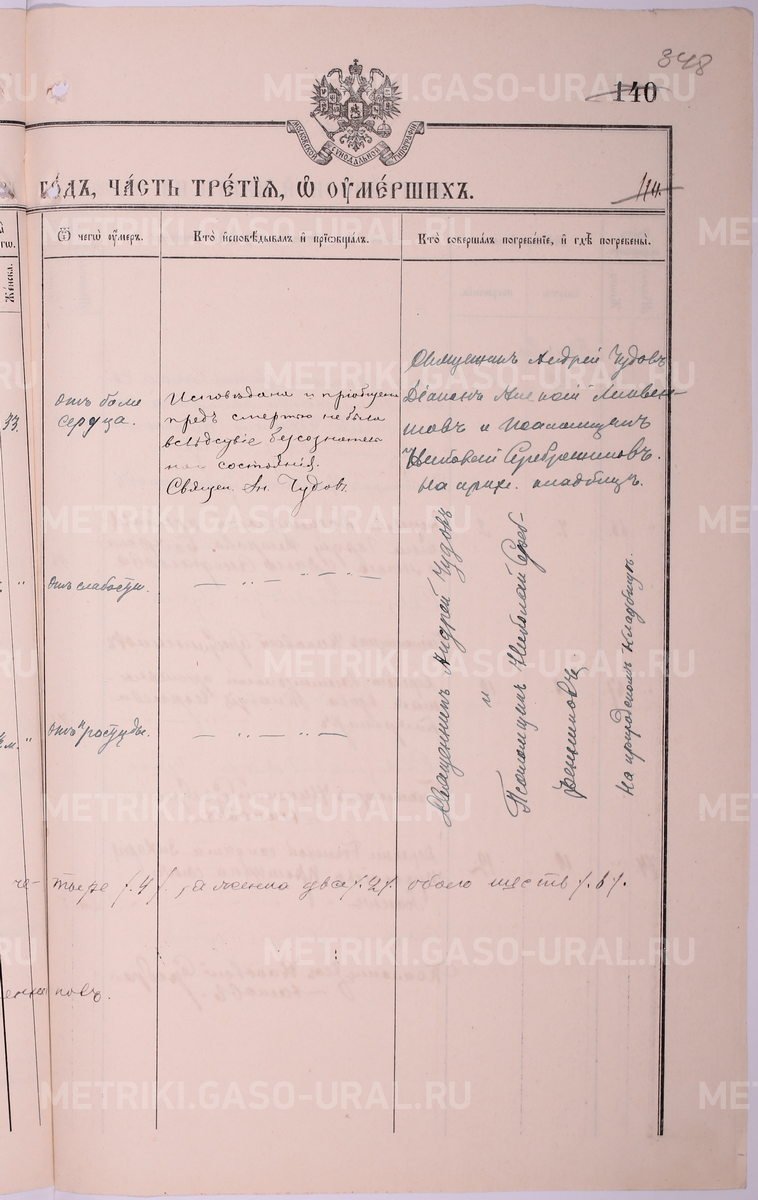 348
140
МОСКОВСКОЙ СѴНОДАЛЬНОЙ ТИПОГРАФІИ
ГО́ДЪ, ЧА́СТЬ ТРЕ́ТІѦ, Ѡ҆ ОУ҆МЕ́РШИХЪ.
114.
Ѿ чегѡ̀ оу҆́меръ.
Кто̀ и҆сповѣ́дывалъ и҆ прїѡбща́лъ.
Кто̀ соверша́лъ погребе́нїе, и҆ гдѣ̀ погребены̀.
Же́нска.
33.
отъ боли
сердца.
Исповѣдана и пріобщена
предъ смертью не была
вслѣдсвіе безсознатель
наго состоянія.
Священ. Ан. Чудовъ.
Священникъ Андрей Чудовъ
Діаконъ
и Псаломщикъ
Николай Серебренниковъ.
На прихо. кладбищѣ.
отъ слабости.
— „ — „ — „ —
отъ простуды.
м. „
— „ — „ — —
Священникъ Андрей Чудовъ
и
Псаломщикъ Николай Сереб-
ренниковъ.
На приходскомъ кладбищѣ.
че- тыре /.4/. а женска два /.2/. обоего шесть /.6/.
никовъ.
METRIKI.GASO-URAL.RU